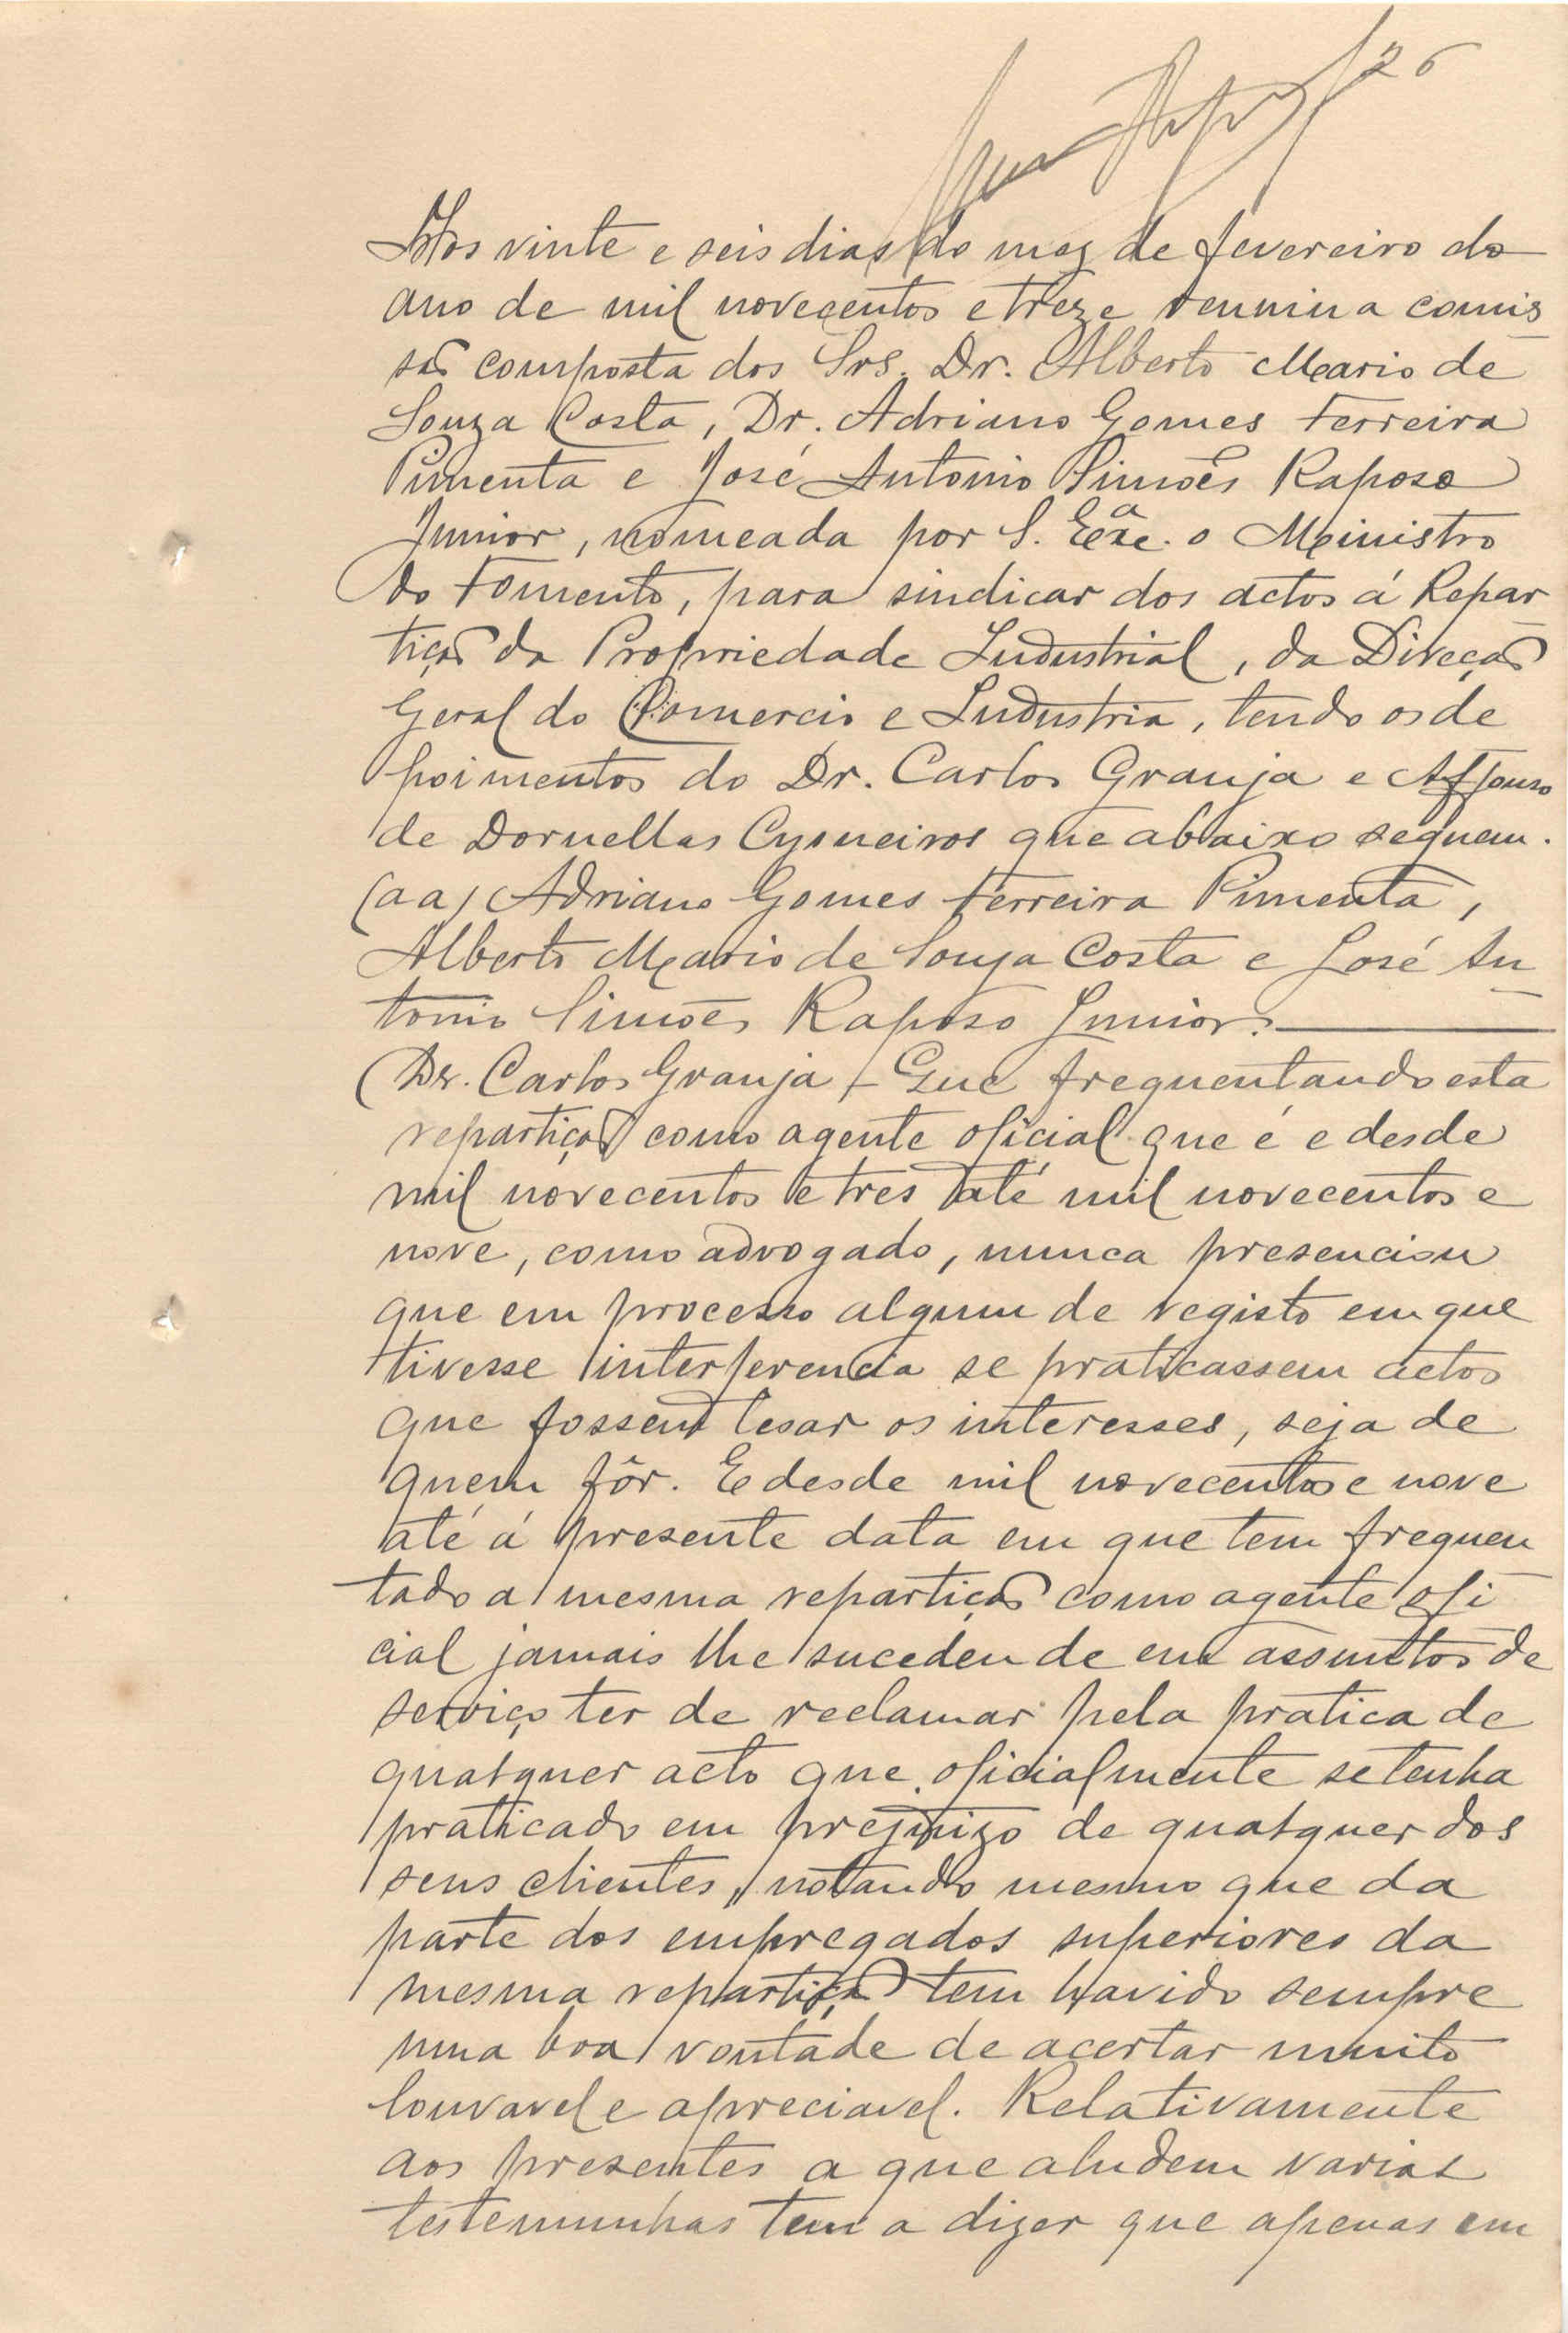 26
Aos vinte e seis dias do mez de fevereiro do
ano de mil novecentos e treze reuniu a comis
são composta dos Srs. Dr. Alberto Mario de
Souza Costa, Dr. Adriano Gomes Ferreira
Pimenta e José Antonio Simões Raposo
Junior, nomeada por S. Exª. o Ministro
do Fomento, para sindicar dos actos á Repar
tição da Propriedade Industrial, da Direção
Geral do Comercio e Industria, tendo os de
poimentos do Dr. Carlos Granja e Affonso
de Dornellas Cysneiros que abaixo seguem.
(a a) Adriano Gomes Ferreira Pimenta,
Alberto Mario de Souza Costa e José An
tonio Simões Raposo Junior.
(Dr. Carlos Granja - Que frequentando esta
repartição como agente oficial que é e desde
mil novecentos e tres até mil novecentos e
nove, como advogado, nunca presenciou
que em processo algum de registo em que
tivesse interferencia se praticassem actos
que fossem lesar os interesses, seja de
quem fôr. E desde mil novecentos e nove
até á presente data em que tem frequen
tado a mesma repartição como agente ofi
cial jamais lhe sucedeu de em assuntos de
serviço ter de reclamar pela pratica de
qualquer acto que oficialmente se tenha
praticado em prejuizo de qualquer dos
seus clientes, notando mesmo que da
parte dos empregados superiores da
mesma repartição tem havido sempre
uma boa vontade de acertar muito
louvavel e apreciavel. Relativamente
aos presentes a que aludem varias
testemunhas tem a dizer que apenas em